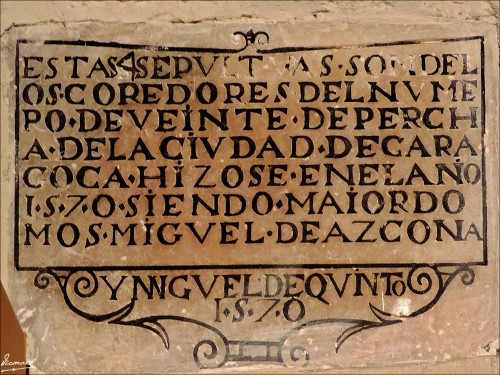 ESTAS 4 SEPVLTVRAS·SON DEL
OS·COREDORES DEL NVME
PO·DE VEINTE·DE PERCH
A·DE LA CIVDAD·DE CARA
COCA·HIZOSE·EN EL AÑO
I·S·7·O·SIENDO·MAIORDO
MOS·MIGVEL·DE AZCONA
Y MIGVEL DE QVINTO
I·S·7·O